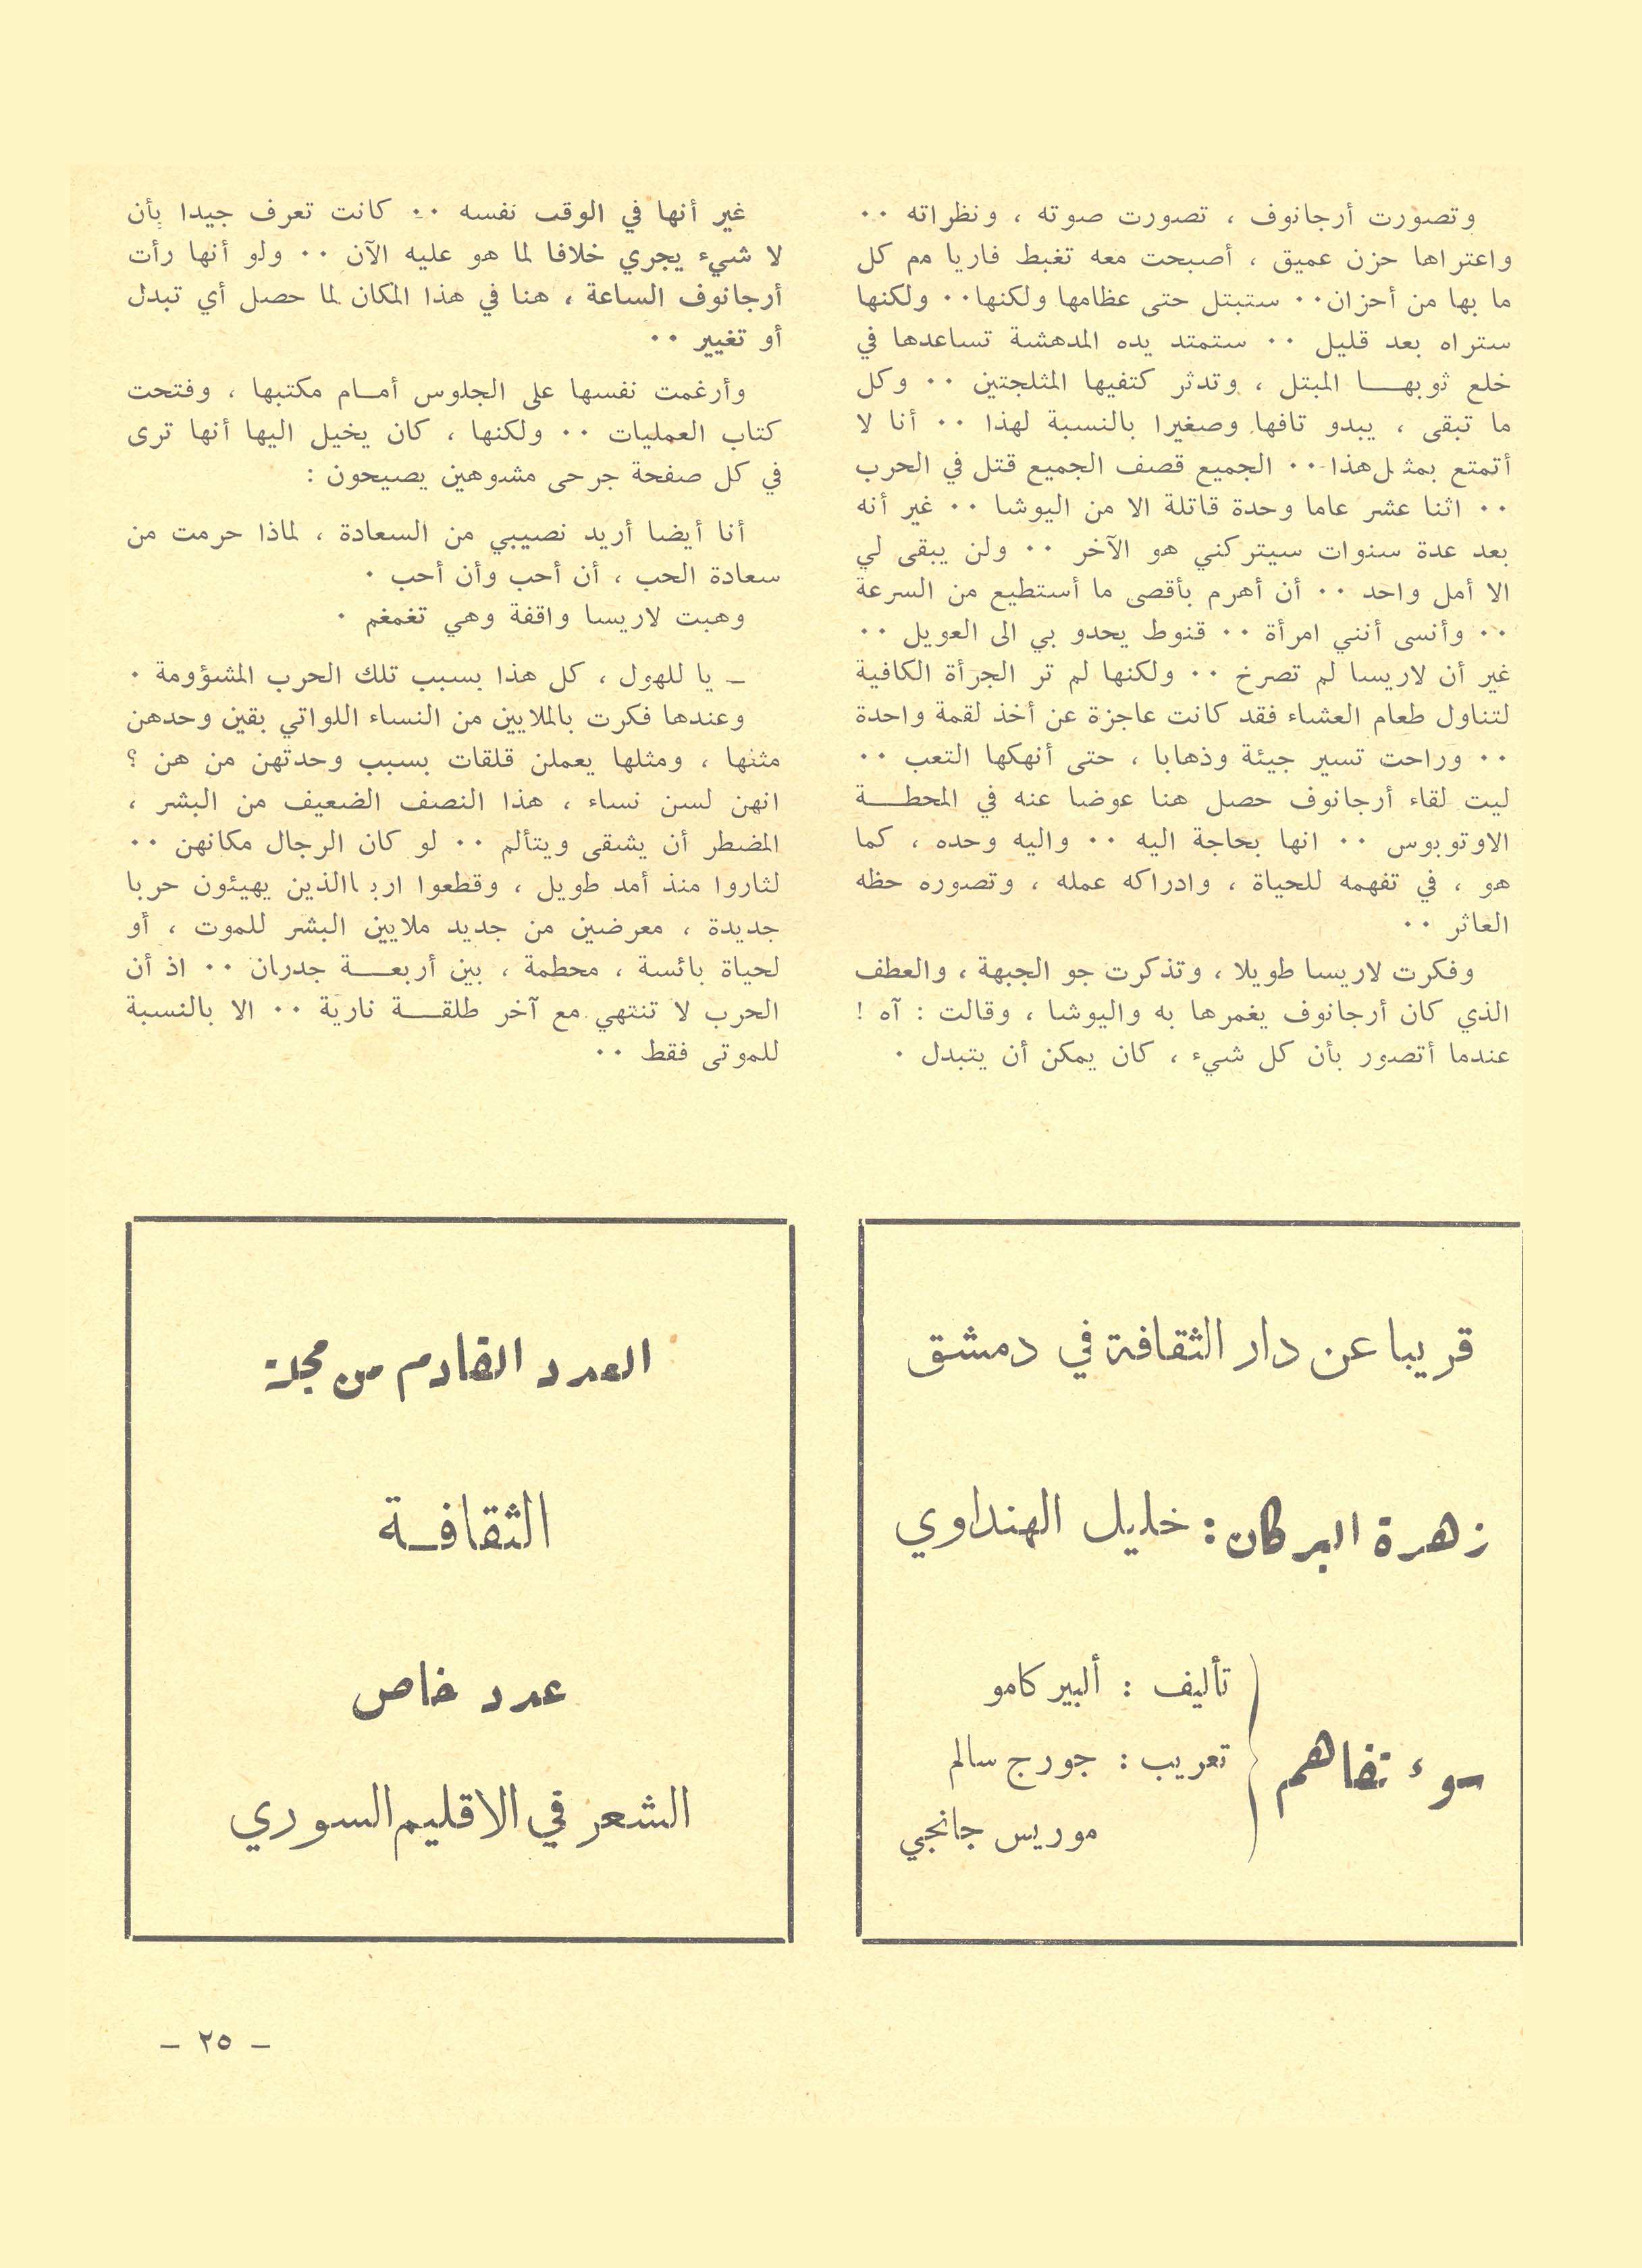 وتصورت أرجانوف ، تصورت صوته ، ونظراته ٠٠
واعتراها حزن عميق ، أصبحت معه تغبط فاريا مم كل
ما بها من أحزان٠٠ ستبتل حتى عظامها ولكنها٠٠ ولكنها
ستراه بعد قليل ٠٠ ستمتد يده المدهشة تساعدها في
خلع ثوبهــا المبتل ، وتدثر كتفيها المثلجتين ٠٠ وكل
ما تبقى ، يبدو تافها وصغيرا بالنسبة لهذا ٠٠ أنا لا
أتمتع بمثل هذا ٠٠ الجميع قصف الجميع قتل في الحرب
٠٠ اثنا عشر عاما وحدة قاتلة الا من اليوشا ٠٠ غير أنه
بعد عدة سنوات سيتركني هو الآخر ٠٠ ولن يبقى لي
الا أمل واحد ٠٠ أن أهرم بأقصى ما أستطيع من السرعة
٠٠ وأنسى أنني امرأة ٠٠ قنوط يحدو بي الى العويل ٠٠
غير أن لاريسا لم تصرخ ٠٠ ولكنها لم تر الجرأة الكافية
لتناول طعام العشاء فقد كانت عاجزة عن أخذ لقمة واحدة
٠٠ وراحت تسير جيئة وذهابا ، حتى أنهكها التعب ٠٠
ليت لقاء أرجانوف حصل هنا عوضا عنه في المحطــة
الاوتوبوس ٠٠ انها بحاجة اليه ٠٠ واليه وحده ، كما
هو ، في تفهمه للحياة ، وادراكه عمله ، وتصوره حظه
العاثر ٠٠
وفكرت لاريسا طويلا ، وتذكرت جو الجبهة ، والعطف
الذي كان أرجانوف يغمرها به واليوشا ، وقالت : آه !
عندما أتصور بأن كل شيء ، كان يمكن أن يتبدل ٠
غير أنها في الوقت نفسه ٠٠ كانت تعرف جيدا بأن
لا شيء يجري خلافا لما هو عليه الآن ٠٠ ولو أنها رأت
أرجانوف الساعة ، هنا في هذا المكان لما حصل أي تبدل
أو تغيير ٠٠
وأرغمت نفسها على الجلوس أمــام مكتبها ، وفتحت
كتاب العمليات ٠٠ ولكنها ، كان يخيل اليها أنها ترى
في كل صفحة جرحى مشوهين يصيحون :
أنا أيضا أريد نصيبي من السعادة ، لماذا حرمت من
سعادة الحب ، أن أحب وأن أحب ٠
وهبت لاريسا واقفة وهي تغمغم ٠
ــ يا للهول ، كل هذا بسبب تلك الحرب المشؤومة ٠
وعندها فكرت بالملايين من النساء اللواتي بقين وحدهن
مثلها ، ومثلها يعملن قلقات بسبب وحدتهن من هن ؟
انهن لسن نساء ، هذا النصف الضعيف من البشر ،
المضطر أن يشقى ويتألم ٠٠ لو كان الرجال مكانهن ٠٠
لثاروا منذ أمد طويل ، وقطعوا اربا الذين يهيئون حربا
جديدة ، معرضين من جديد ملايين البشر للموت ، أو
لحياة بائسة ، محطمة ، بين أربعــة جدران ٠٠ اذ أن
الحرب لا تنتهي مع آخر طلقــة نارية ٠٠ الا بالنسبة
للموتى فقط ٠٠
قريبا عن دار الثقافة في دمشق
زهرة البركان : خليل الهنداوي
سوء تفاهم
تأليف : ألبير كامو
تعريب : جورج سالم
موريس جانجي
العدد القادم من مجلة
الثقافــة
عدد خاص
الشعر في الاقليم السوري
– ٢٥ –